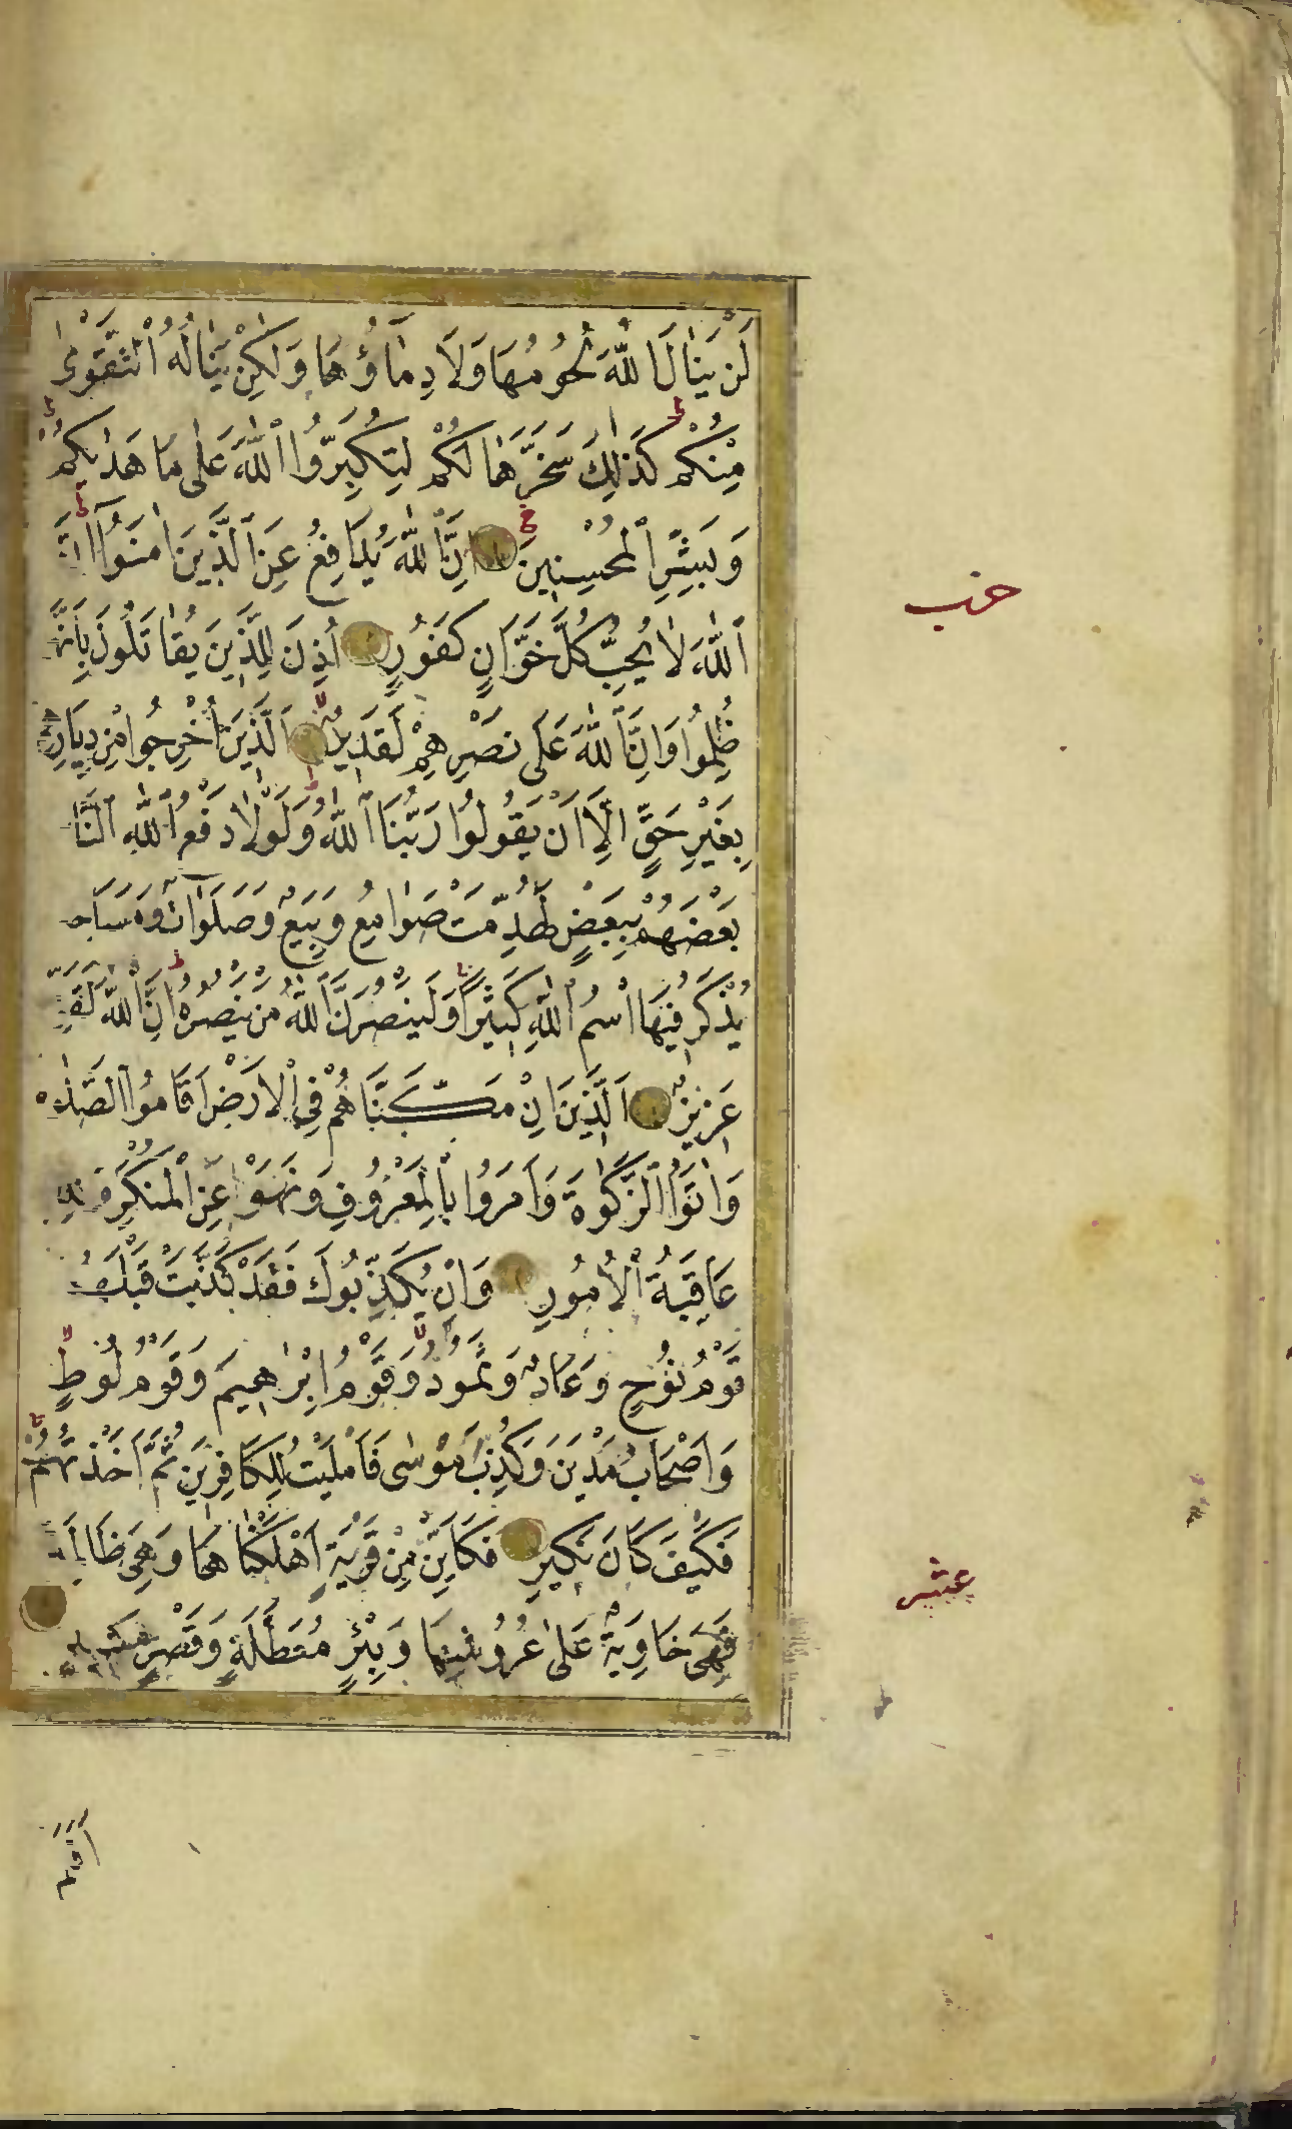 لَنْ يَنَالَ اللّٰهَ لُحُومُهَا وَلَا دِمَاؤُهَا وَلٰكِنْ يَنَالُهُ التَّقْوٰى
مِنْكُمْ كَذٰلِكَ سَخَّرَهَا لَكُمْ لِتُكَبِّرُوا اللّٰهَ عَلٰى مَا هَدٰيكُمْ
وَبَشِّرِ الْمُحْسِنِينَ اِنَّ اللّٰهَ يُدَافِعُ عَنِ الَّذِينَ اٰمَنُوا اِنَّ
اللّٰهَ لَا يُحِبُّ كُلَّ خَوَّانٍ كَفُورٍ اُذِنَ لِلَّذِينَ يُقَاتَلُونَ بِاَنَّهُمْ
ظُلِمُوا وَاِنَّ اللّٰهَ عَلٰى نَصْرِهِمْ لَقَدِيرٌ اَلَّذِينَ اُخْرِجُوا مِنْ دِيَارِهِمْ
بِغَيْرِ حَقٍّ اِلَّا اَنْ يَقُولُوا رَبُّنَا اللّٰهُ وَلَوْلَا دَفْعُ اللّٰهِ النَّاسَ
بَعْضَهُمْ بِبَعْضٍ لَهُدِّمَتْ صَوَامِعُ وَبِيَعٌ وَصَلَوَاتٌ وَمَسَاجِدُ
يُذْكَرُ فِيهَا اسْمُ اللّٰهِ كَثِيرًا وَلَيَنْصُرَنَّ اللّٰهُ مَنْ يَنْصُرُهُ اِنَّ اللّٰهَ لَقَوِيٌّ
عَزِيزٌ اَلَّذِينَ اِنْ مَكَّنَّاهُمْ فِي الْاَرْضِ اَقَامُوا الصَّلٰوةَ
وَاٰتَوُا الزَّكٰوةَ وَاَمَرُوا بِالْمَعْرُوفِ وَنَهَوْا عَنِ الْمُنْكَرِ وَلِلّٰهِ
عَاقِبَةُ الْاُمُورِ وَاِنْ يُكَذِّبُوكَ فَقَدْ كَذَّبَتْ قَبْلَهُمْ
قَوْمُ نُوحٍ وَعَادٌ وَثَمُودُ وَقَوْمُ اِبْرٰهِيمَ وَقَوْمُ لُوطٍ
وَاَصْحَابُ مَدْيَنَ وَكُذِّبَ مُوسٰى فَاَمْلَيْتُ لِلْكَافِرِينَ ثُمَّ اَخَذْتُهُمْ
فَكَيْفَ كَانَ نَكِيرِ فَكَاَيِّنْ مِنْ قَرْيَةٍ اَهْلَكْنَاهَا وَهِيَ ظَالِمَةٌ
فَهِيَ خَاوِيَةٌ عَلٰى عُرُوشِهَا وَبِئْرٍ مُعَطَّلَةٍ وَقَصْرٍ مَشِيدٍ
حزب
عشر
اَفَلَمْ